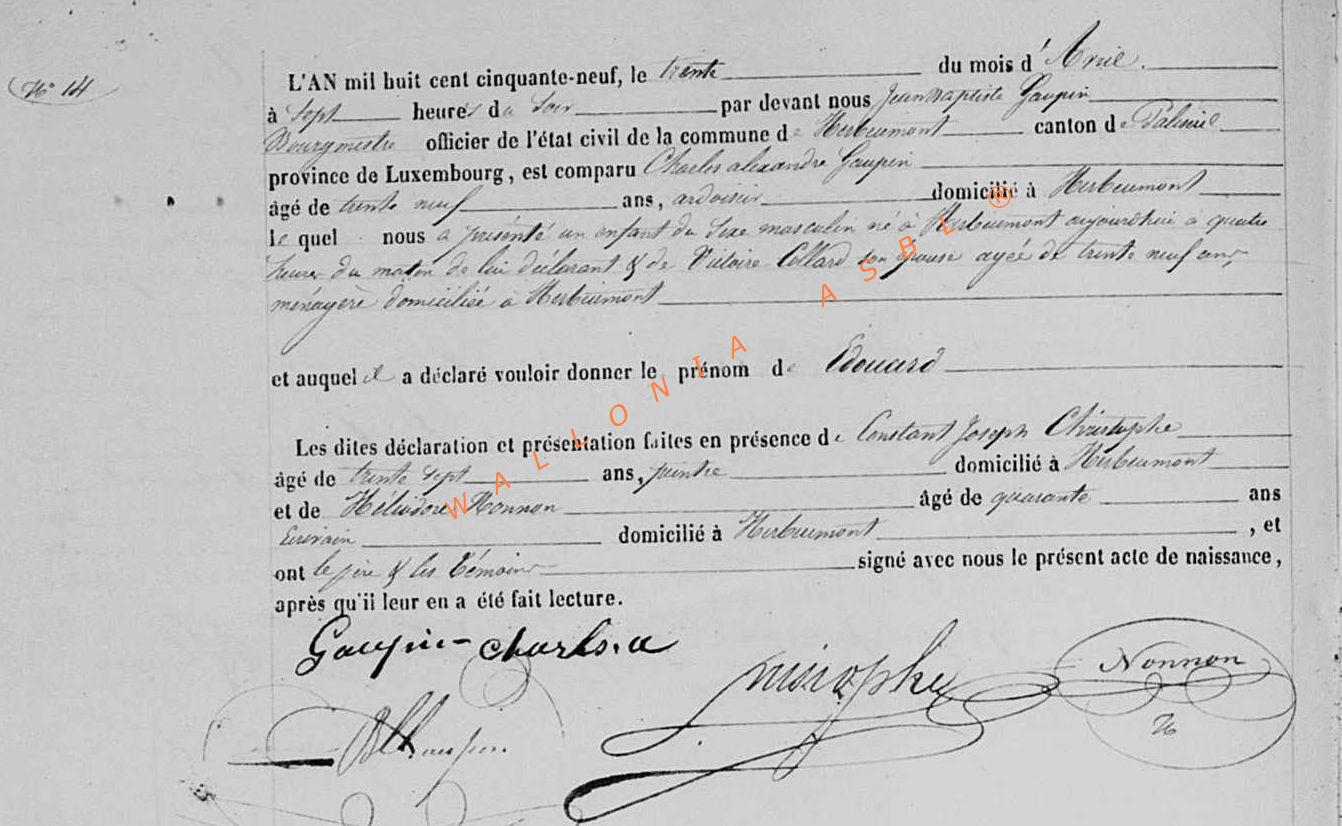 N° 14
L'AN mil huit cent cinquante-neuf, le trente du mois d' Avril.
à sept heures du soir par devant nous Jean Baptiste Gaupin
Bourgmestre officier de l'état civil de la commune de Herbeumont canton de Paliseul
province de Luxembourg, est comparu Charles alexandre Gaupin
âgé de trente neuf ans, ardoisier domicilié à Herbeumont
le quel nous a présenté un enfant du sexe masculin né à Herbeumont aujourdhui a quatre
heures du matin de lui déclarant & de Victoire Collard son épouse agée de trente neuf ans,
ménagère domiciliée à Herbeumont
et auquel il a déclaré vouloir donner le prénom de Edouard
Les dites déclaration et présentation faites en présence de Constant Joseph Christophe
âgé de trente sept ans, peintre domicilié à Herbeumont
et de Héliodore Nonnon âgé de quarante ans
Ecrivain domicilié à Herbeumont, et
ont le père & les témoins signé avec nous le présent acte de naissance,
après qu'il leur en a été fait lecture.
Gaupin charles. a
Nonnon
H
WALLONIA ASBL ®